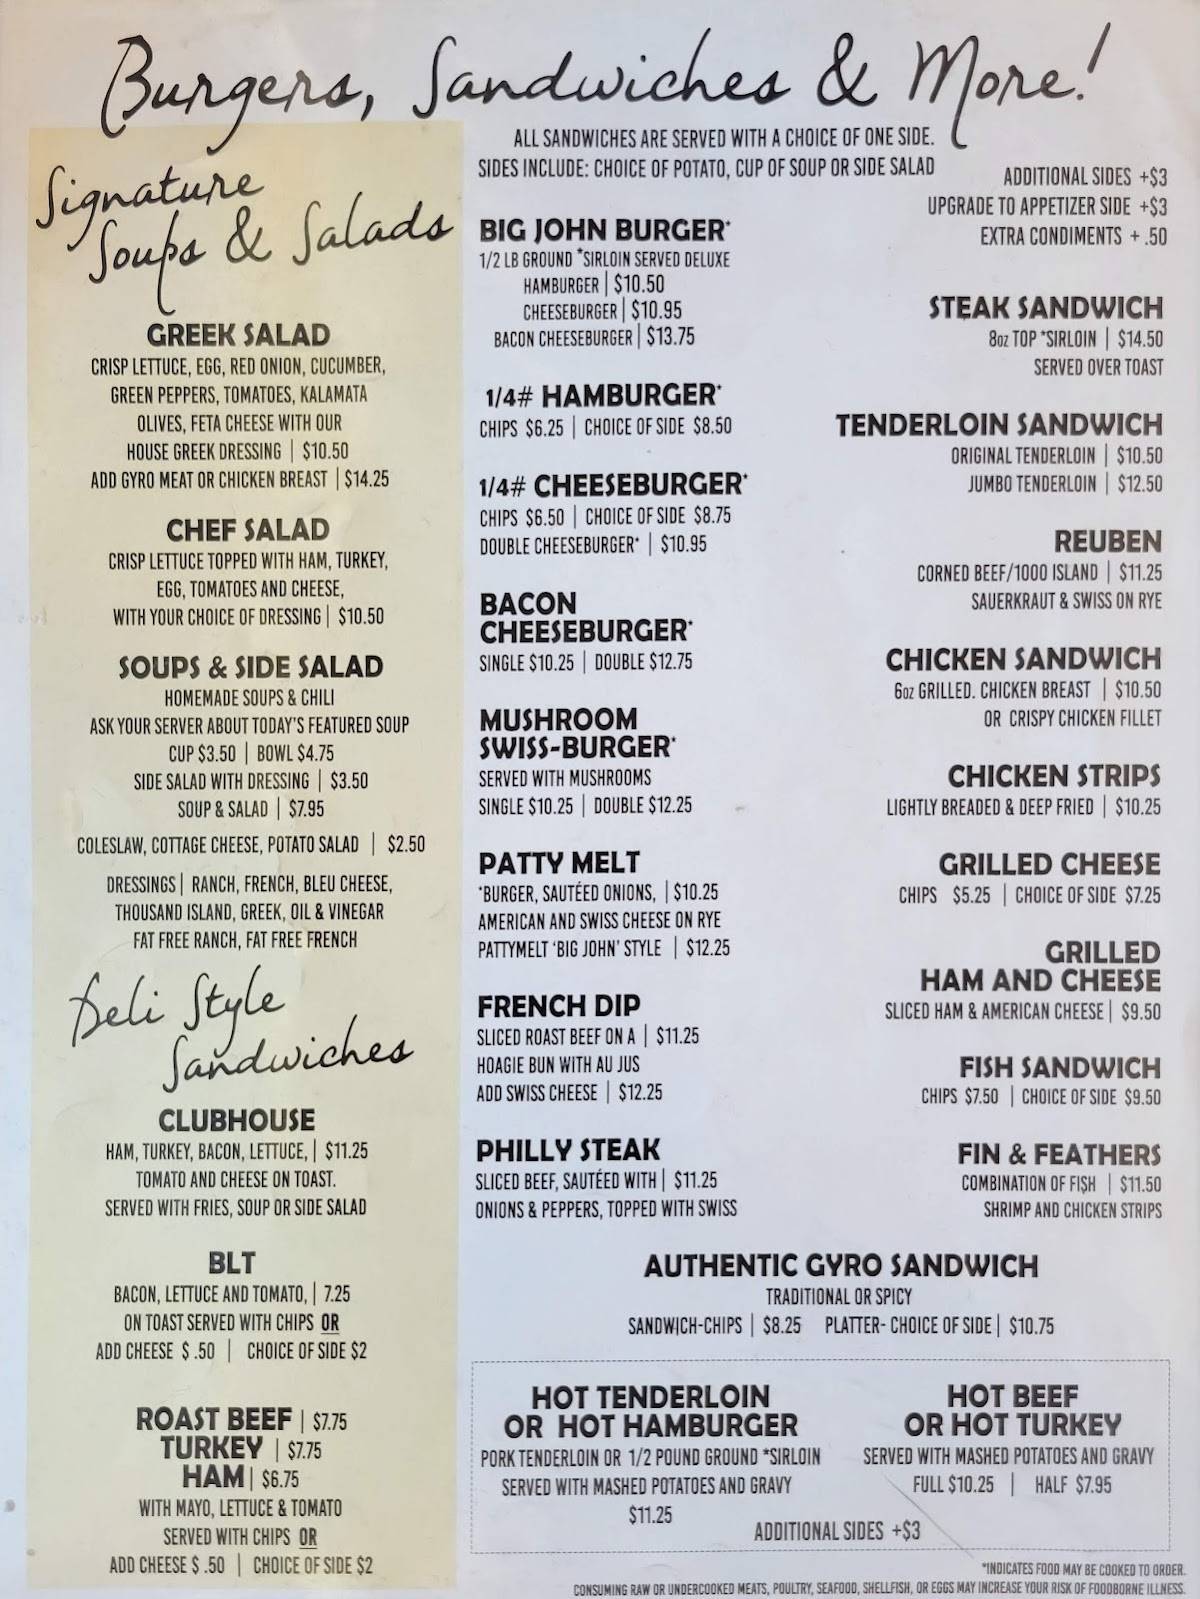 Burgers, Sandwiches & More!
Signature
Soups & Salads
GREEK SALAD
CRISP LETTUCE, EGG, RED ONION, CUCUMBER,
GREEN PEPPERS, TOMATOES, KALAMATA
OLIVES, FETA CHEESE WITH OUR
HOUSE GREEK DRESSING | $10.50
ADD GYRO MEAT OR CHICKEN BREAST | $14.25
CHEF SALAD
CRISP LETTUCE TOPPED WITH HAM, TURKEY,
EGG, TOMATOES AND CHEESE,
WITH YOUR CHOICE OF DRESSING | $10.50
SOUPS & SIDE SALAD
HOMEMADE SOUPS & CHILI
ASK YOUR SERVER ABOUT TODAY'S FEATURED SOUP
CUP $3.50 | BOWL $4.75
SIDE SALAD WITH DRESSING | $3.50
SOUP & SALAD | $7.95
COLESLAW, COTTAGE CHEESE, POTATO SALAD | $2.50
DRESSINGS | RANCH, FRENCH, BLEU CHEESE,
THOUSAND ISLAND, GREEK, OIL & VINEGAR
FAT FREE RANCH, FAT FREE FRENCH
Deli Style
Sandwiches
CLUBHOUSE
HAM, TURKEY, BACON, LETTUCE, | $11.25
TOMATO AND CHEESE ON TOAST.
SERVED WITH FRIES, SOUP OR SIDE SALAD
BLT
BACON, LETTUCE AND TOMATO, | 7.25
ON TOAST SERVED WITH CHIPS OR
ADD CHEESE $ .50 | CHOICE OF SIDE $2
ROAST BEEF | $7.75
TURKEY | $7.75
HAM | $6.75
WITH MAYO, LETTUCE & TOMATO
SERVED WITH CHIPS OR
ADD CHEESE $ .50 | CHOICE OF SIDE $2
ALL SANDWICHES ARE SERVED WITH A CHOICE OF ONE SIDE.
SIDES INCLUDE: CHOICE OF POTATO, CUP OF SOUP OR SIDE SALAD
BIG JOHN BURGER*
1/2 LB GROUND *SIRLOIN SERVED DELUXE
HAMBURGER | $10.50
CHEESEBURGER | $10.95
BACON CHEESEBURGER | $13.75
1/4# HAMBURGER*
CHIPS $6.25 | CHOICE OF SIDE $8.50
1/4# CHEESEBURGER*
CHIPS $6.50 | CHOICE OF SIDE $8.75
DOUBLE CHEESEBURGER* | $10.95
BACON
CHEESEBURGER*
SINGLE $10.25 | DOUBLE $12.75
MUSHROOM
SWISS-BURGER*
SERVED WITH MUSHROOMS
SINGLE $10.25 | DOUBLE $12.25
PATTY MELT
*BURGER, SAUTÉED ONIONS, | $10.25
AMERICAN AND SWISS CHEESE ON RYE
PATTYMELT 'BIG JOHN' STYLE | $12.25
FRENCH DIP
SLICED ROAST BEEF ON A | $11.25
HOAGIE BUN WITH AU JUS
ADD SWISS CHEESE | $12.25
PHILLY STEAK
SLICED BEEF, SAUTÉED WITH | $11.25
ONIONS & PEPPERS, TOPPED WITH SWISS
ADDITIONAL SIDES +$3
UPGRADE TO APPETIZER SIDE +$3
EXTRA CONDIMENTS + .50
STEAK SANDWICH
8oz TOP *SIRLOIN | $14.50
SERVED OVER TOAST
TENDERLOIN SANDWICH
ORIGINAL TENDERLOIN | $10.50
JUMBO TENDERLOIN | $12.50
REUBEN
CORNED BEEF/1000 ISLAND | $11.25
SAUERKRAUT & SWISS ON RYE
CHICKEN SANDWICH
6oz GRILLED. CHICKEN BREAST | $10.50
OR CRISPY CHICKEN FILLET
CHICKEN STRIPS
LIGHTLY BREADED & DEEP FRIED | $10.25
GRILLED CHEESE
CHIPS $5.25 | CHOICE OF SIDE $7.25
GRILLED
HAM AND CHEESE
SLICED HAM & AMERICAN CHEESE | $9.50
FISH SANDWICH
CHIPS $7.50 | CHOICE OF SIDE $9.50
FIN & FEATHERS
COMBINATION OF FISH | $11.50
SHRIMP AND CHICKEN STRIPS
AUTHENTIC GYRO SANDWICH
TRADITIONAL OR SPICY
SANDWICH-CHIPS | $8.25 PLATTER- CHOICE OF SIDE | $10.75
HOT TENDERLOIN
OR HOT HAMBURGER
PORK TENDERLOIN OR 1/2 POUND GROUND *SIRLOIN
SERVED WITH MASHED POTATOES AND GRAVY
$11.25
HOT BEEF
OR HOT TURKEY
SERVED WITH MASHED POTATOES AND GRAVY
FULL $10.25 | HALF $7.95
ADDITIONAL SIDES +$3
*INDICATES FOOD MAY BE COOKED TO ORDER.
CONSUMING RAW OR UNDERCOOKED MEATS, POULTRY, SEAFOOD, SHELLFISH, OR EGGS MAY INCREASE YOUR RISK OF FOODBORNE ILLNESS.